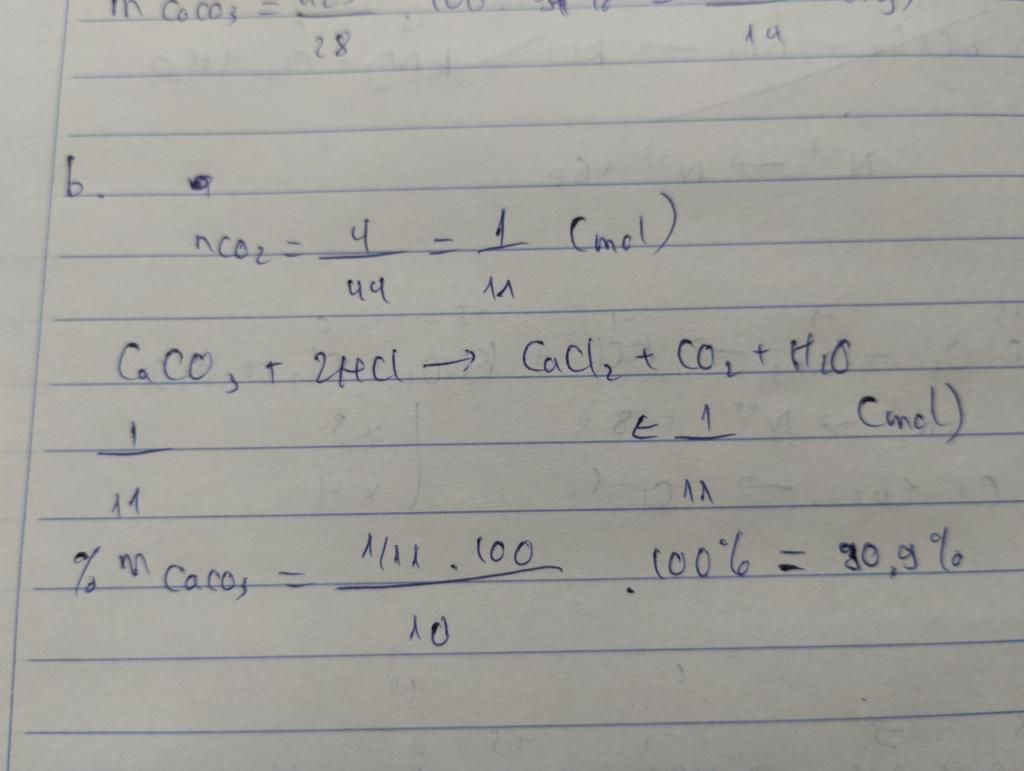 m CaCO3 =
28
14
b.
nCO2 = 4/44 = 1/11 (mol)
CaCO3 + 2HCl → CaCl2 + CO2 + H2O
1/11 ← 1/11 (mol)
% m CaCO3 = (1/11 . 100)/10 . 100% = 90,9%